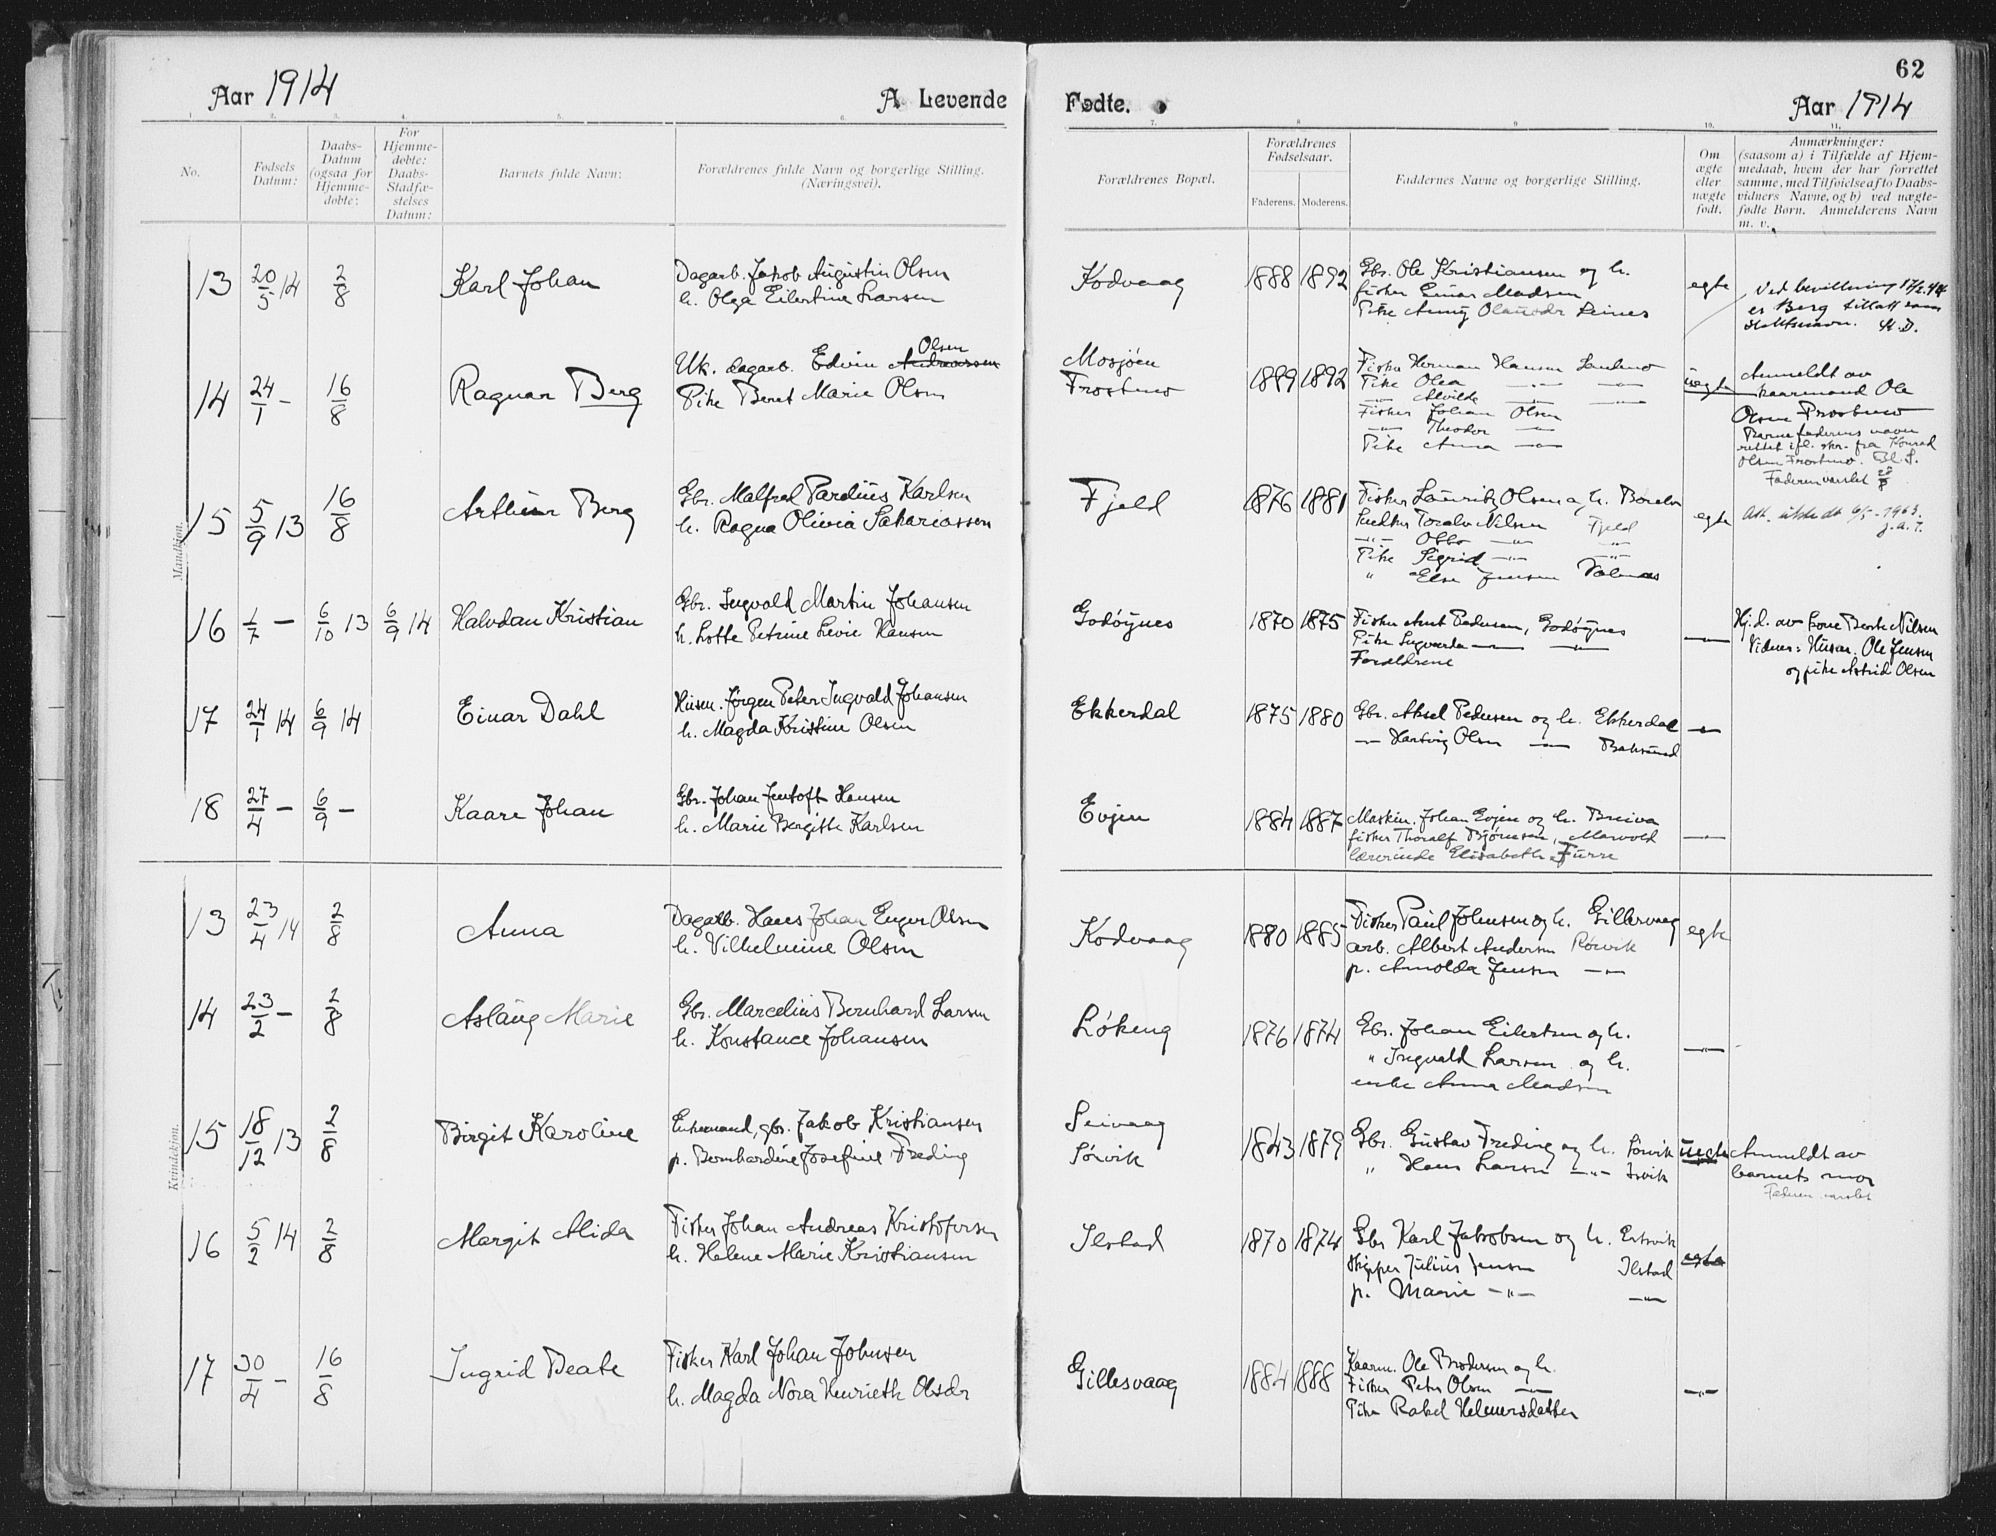 62
Aar 1914
A. Levende
Fødte.
Aar 1914
1. 2. 3. 4. 5. 6. 7. 8. 9. 10. 11.
No.
Fødsels
Datum:
Daabs-
Datum
(ogsaa for
Hjemme-
døbte:
For
Hjemme-
døbte:
Daabs-
Stadfæ-
stelses
Datum:
Barnets fulde Navn:
Forældrenes fulde Navn og borgerlige Stilling.
(Næringsvei).
Forældrenes Bopæl.
Forældrenes
Fødselsaar.
Faderens. Moderens.
Faddernes Navne og borgerlige Stilling.
Om
ægte
eller
uægte
født.
Anmærkninger:
(saasom a) i Tilfælde af Hjem-
medaab, hvem der har forrettet
samme, med Tilføielse af to Daabs-
vidners Navne, og b) ved uægte-
fødte Børn. Anmelderens Navn
m. v.
Mandkjøn.
13 20/5 14 2/8 Karl Johan
Dagarb. Jakob Augustin Olsen
h. Olga Eilertine Larsen
Kodvaag 1888 1892
Gbr. Ole Kristiansen og h.
fisker Einar Madsen
Pike Anny Olausdr Leines
egte
Ved bevillning 17/2.44
er Berg tillatt som
slektsnavn.
14 24/1 - 16/8 Ragnar Berg
Olsen
Uk. dagarb. Edvin Andreassen
Pike Beret Marie Olsen
Mosjøen
Frostmo
1889 1892
Fisker Herman Hansen
Pike Olea —"— —"—
—"— Alvilde —"— —"—
Fisker Johan Olsen
—"— Theodor —"—
Pike Anna —"—
uegte
Anmeldt av
kaarmand Ole
Olsen Frostmo
Barnefaderens navn
rettet ifl. skr. fra Konrad
Olsen Frostmo.
Faderen varslet 28/8
15 5/9 13 16/8 Arthur Berg
Gbr. Malfred Pareliùs Karlsen
h. Ragna Olivia Sakariassen
Fjeld 1876 1881
Fisker Lauritz Olsen og h.
Toralv Nilsen Fjeld
—"— Otto —"— —"—
Pike Sigrid —"— —"—
" Else Jensen
egte
Att. utstedt 6/5-1963.
16 1/7 — 6/10 13 6/9 14 Halvdan Kristian
Gbr. Ingvald Martin Johansen
h. Lotte Petrine Levie Hansen
Godøynes 1870 1875
Fisker Arnt Pedersen, Godøynes
Pike Ingvarda —"— —"—
Forældrene
—"—
Hj.d. av Lone Berte Nilsen
Vidner: Husm. Ole Jensen
og pike Astrid Olsen
17 24/1 14 6/9 14 Einar Dahl
Husm. Jørgen Peter Ingvald Johansen
h. Magda Kristine Olsen
Ekkerdal 1875 1880
Gbr. Aksel Pedersen og h. Ekkerdal
—"— Hartvig Olsen —"—
—"—
18 27/4 — 6/9 — Kaare Johan
Gbr. Johan Jentoft Hansen
h. Marie Bergitte Karlsen
Evjen 1884 1887
Maskin. Johan Evjen og h. Breiva
fisker Thoralf Bjørnsen, Marvold
lærerinde Elisabeth Furre
—"—
Kvindekjøn.
13 23/4 14 2/8 Anna
Dagarb. Hans Johan Enger Olsen
h. Vilhelmine Olsen
Kodvaag 1880 1885
Fisker Paul Johnsen og h. Gillesvaag
arb. Albert Andersen Rørvik
p. Arnolda Jensen —"—
egte
14 23/2 — 2/8 Aslaug Marie
Gbr. Marcelius Bernhard Larsen
h. Konstance Johansen
Løkeng 1876 1874
Gbr. Johan Eilertsen og h.
" Ingvald Larsen og h.
enke Anna Madsen
—"—
15 18/12 13 2/8 Birgit Karoline
Enkemand, gbr. Jakob Kristiansen
p. Bernhardine Josefine Freding
Seivaag
Sørvik
1843 1879
Gbr. Gustav Freding og h. Sørvik
" Hans Larsen —"—
uegte
Anmeldt av
barnets mor
Faderen varslet
16 5/2 14 2/8 Margit Alida
Fisker Johan Andreas Kristofersen
h. Helene Marie Kristiansen
Ilstad 1870 1874
Gbr Karl Jakobsen og h.
Skipper Julius Jensen Ilstad
p. Marie —"— —"—
egte
17 30/4 — 16/8 Ingrid Beate
Fisker Karl Johan Johnsen
h. Magda Nora Henriette Olsdr
Gillesvaag 1884 1888
Kaarm. Ole Brodersen og h.
Fisker Peter Olsen —"—
Pike Rakel Helmersdatter
—"—